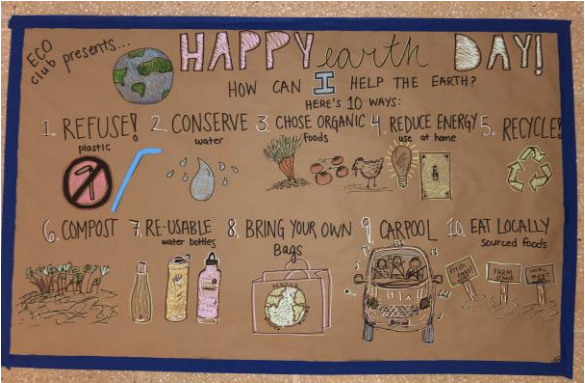 ECO
club presents...
HAPPY earth DAY!
HOW CAN I HELP THE EARTH?
HERE'S 10 WAYS:
1. REFUSE!
plastic
2. CONSERVE
water
3. CHOSE ORGANIC
foods
4. REDUCE ENERGY
use at home
5. RECYCLE!
6. COMPOST
7. RE-USABLE
water bottles
8. BRING YOUR OWN
Bags
9. CARPOOL
10. EAT LOCALLY
sourced foods
FARM
STAND
LOCAL